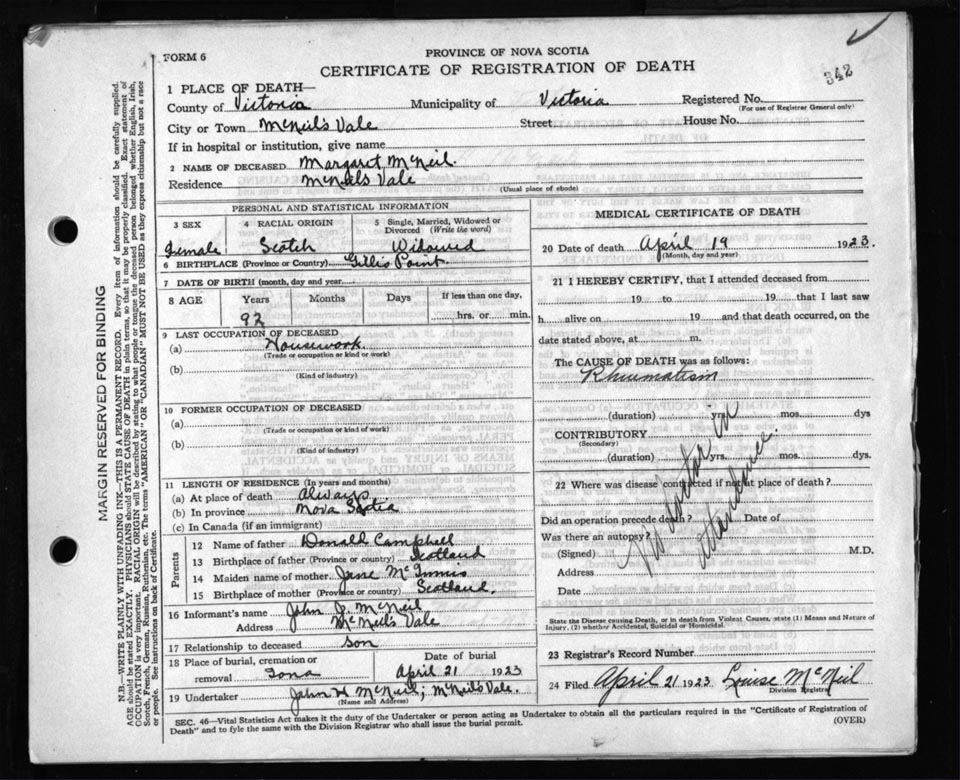 FORM 6
PROVINCE OF NOVA SCOTIA
CERTIFICATE OF REGISTRATION OF DEATH
342
1 PLACE OF DEATH—
County of Victoria Municipality of Victoria Registered No.
(For use of Registrar General only)
City or Town McNeils Vale Street House No.
If in hospital or institution, give name
2 NAME OF DECEASED Margaret McNeil.
Residence McNeils Vale
(Usual place of abode)
PERSONAL AND STATISTICAL INFORMATION
3 SEX 4 RACIAL ORIGIN 5 Single, Married, Widowed or Divorced (Write the word)
Female Scotch Widowed
6 BIRTHPLACE (Province or Country) Gillis Point.
7 DATE OF BIRTH (month, day and year)
8 AGE Years Months Days If less than one day,
92 hrs. or min.
9 LAST OCCUPATION OF DECEASED
(a) Housework
(Trade or occupation or kind or work)
(b)
(Kind of industry)
10 FORMER OCCUPATION OF DECEASED
(a)
(Trade or occupation or kind of work)
(b)
(Kind of industry)
11 LENGTH OF RESIDENCE (In years and months)
(a) At place of death always
(b) In province Nova Scotia
(c) In Canada (if an immigrant)
Parents
12 Name of father Donald Campbell
13 Birthplace of father (Province or country) Scotland
14 Maiden name of mother Jane McInnis
15 Birthplace of mother (Province or country) Scotland.
16 Informant's name John J. McNeil
Address McNeil's Vale
17 Relationship to deceased son
18 Place of burial, cremation or removal Iona
Date of burial
April 21 1923
19 Undertaker John H McNeil; McNeil's Vale.
(Name and Address)
MEDICAL CERTIFICATE OF DEATH
20 Date of death April 19 1923.
(Month, day and year)
21 I HEREBY CERTIFY, that I attended deceased from
19 to 19 that I last saw
h alive on 19 and that death occurred, on the
date stated above, at m.
The CAUSE OF DEATH was as follows:
Rhiumatism
(duration) yrs. mos. dys
CONTRIBUTORY
(Secondary)
(duration) yrs. mos. dys.
22 Where was disease contracted if not at place of death?
Did an operation precede death? Date of
Was there an autopsy?
(Signed) M.D.
Address
Date
No doctor in attendance.
State the Disease causing Death, or in death from Violent Causes, state (1) Means and Nature of
Injury, (2) whether Accidental, Suicidal or Homicidal.
23 Registrar's Record Number
24 Filed April 21 1923 Louise McNeil
Division Registrar
SEC. 46—Vital Statistics Act makes it the duty of the Undertaker or person acting as Undertaker to obtain all the particulars required in the "Certificate of Registration of
Death" and to fyle the same with the Division Registrar who shall issue the burial permit.
(OVER)
MARGIN RESERVED FOR BINDING
N.B.—WRITE PLAINLY WITH UNFADING INK—THIS IS A PERMANENT RECORD. Every item of information should be carefully supplied.
AGE should be stated EXACTLY. PHYSICIANS should STATE CAUSE OF DEATH in plain terms, so that it may be properly classified. Exact statement of
OCCUPATION is very important. RACIAL ORIGIN will be described by stating to what people or tongue the deceased person belonged whether English, Irish,
Scotch, French, German, Russian, Ruthenian, etc. The terms "AMERICAN" OR "CANADIAN" MUST NOT BE USED as they express citizenship but not a race
or people. See instructions on back of Certificate.